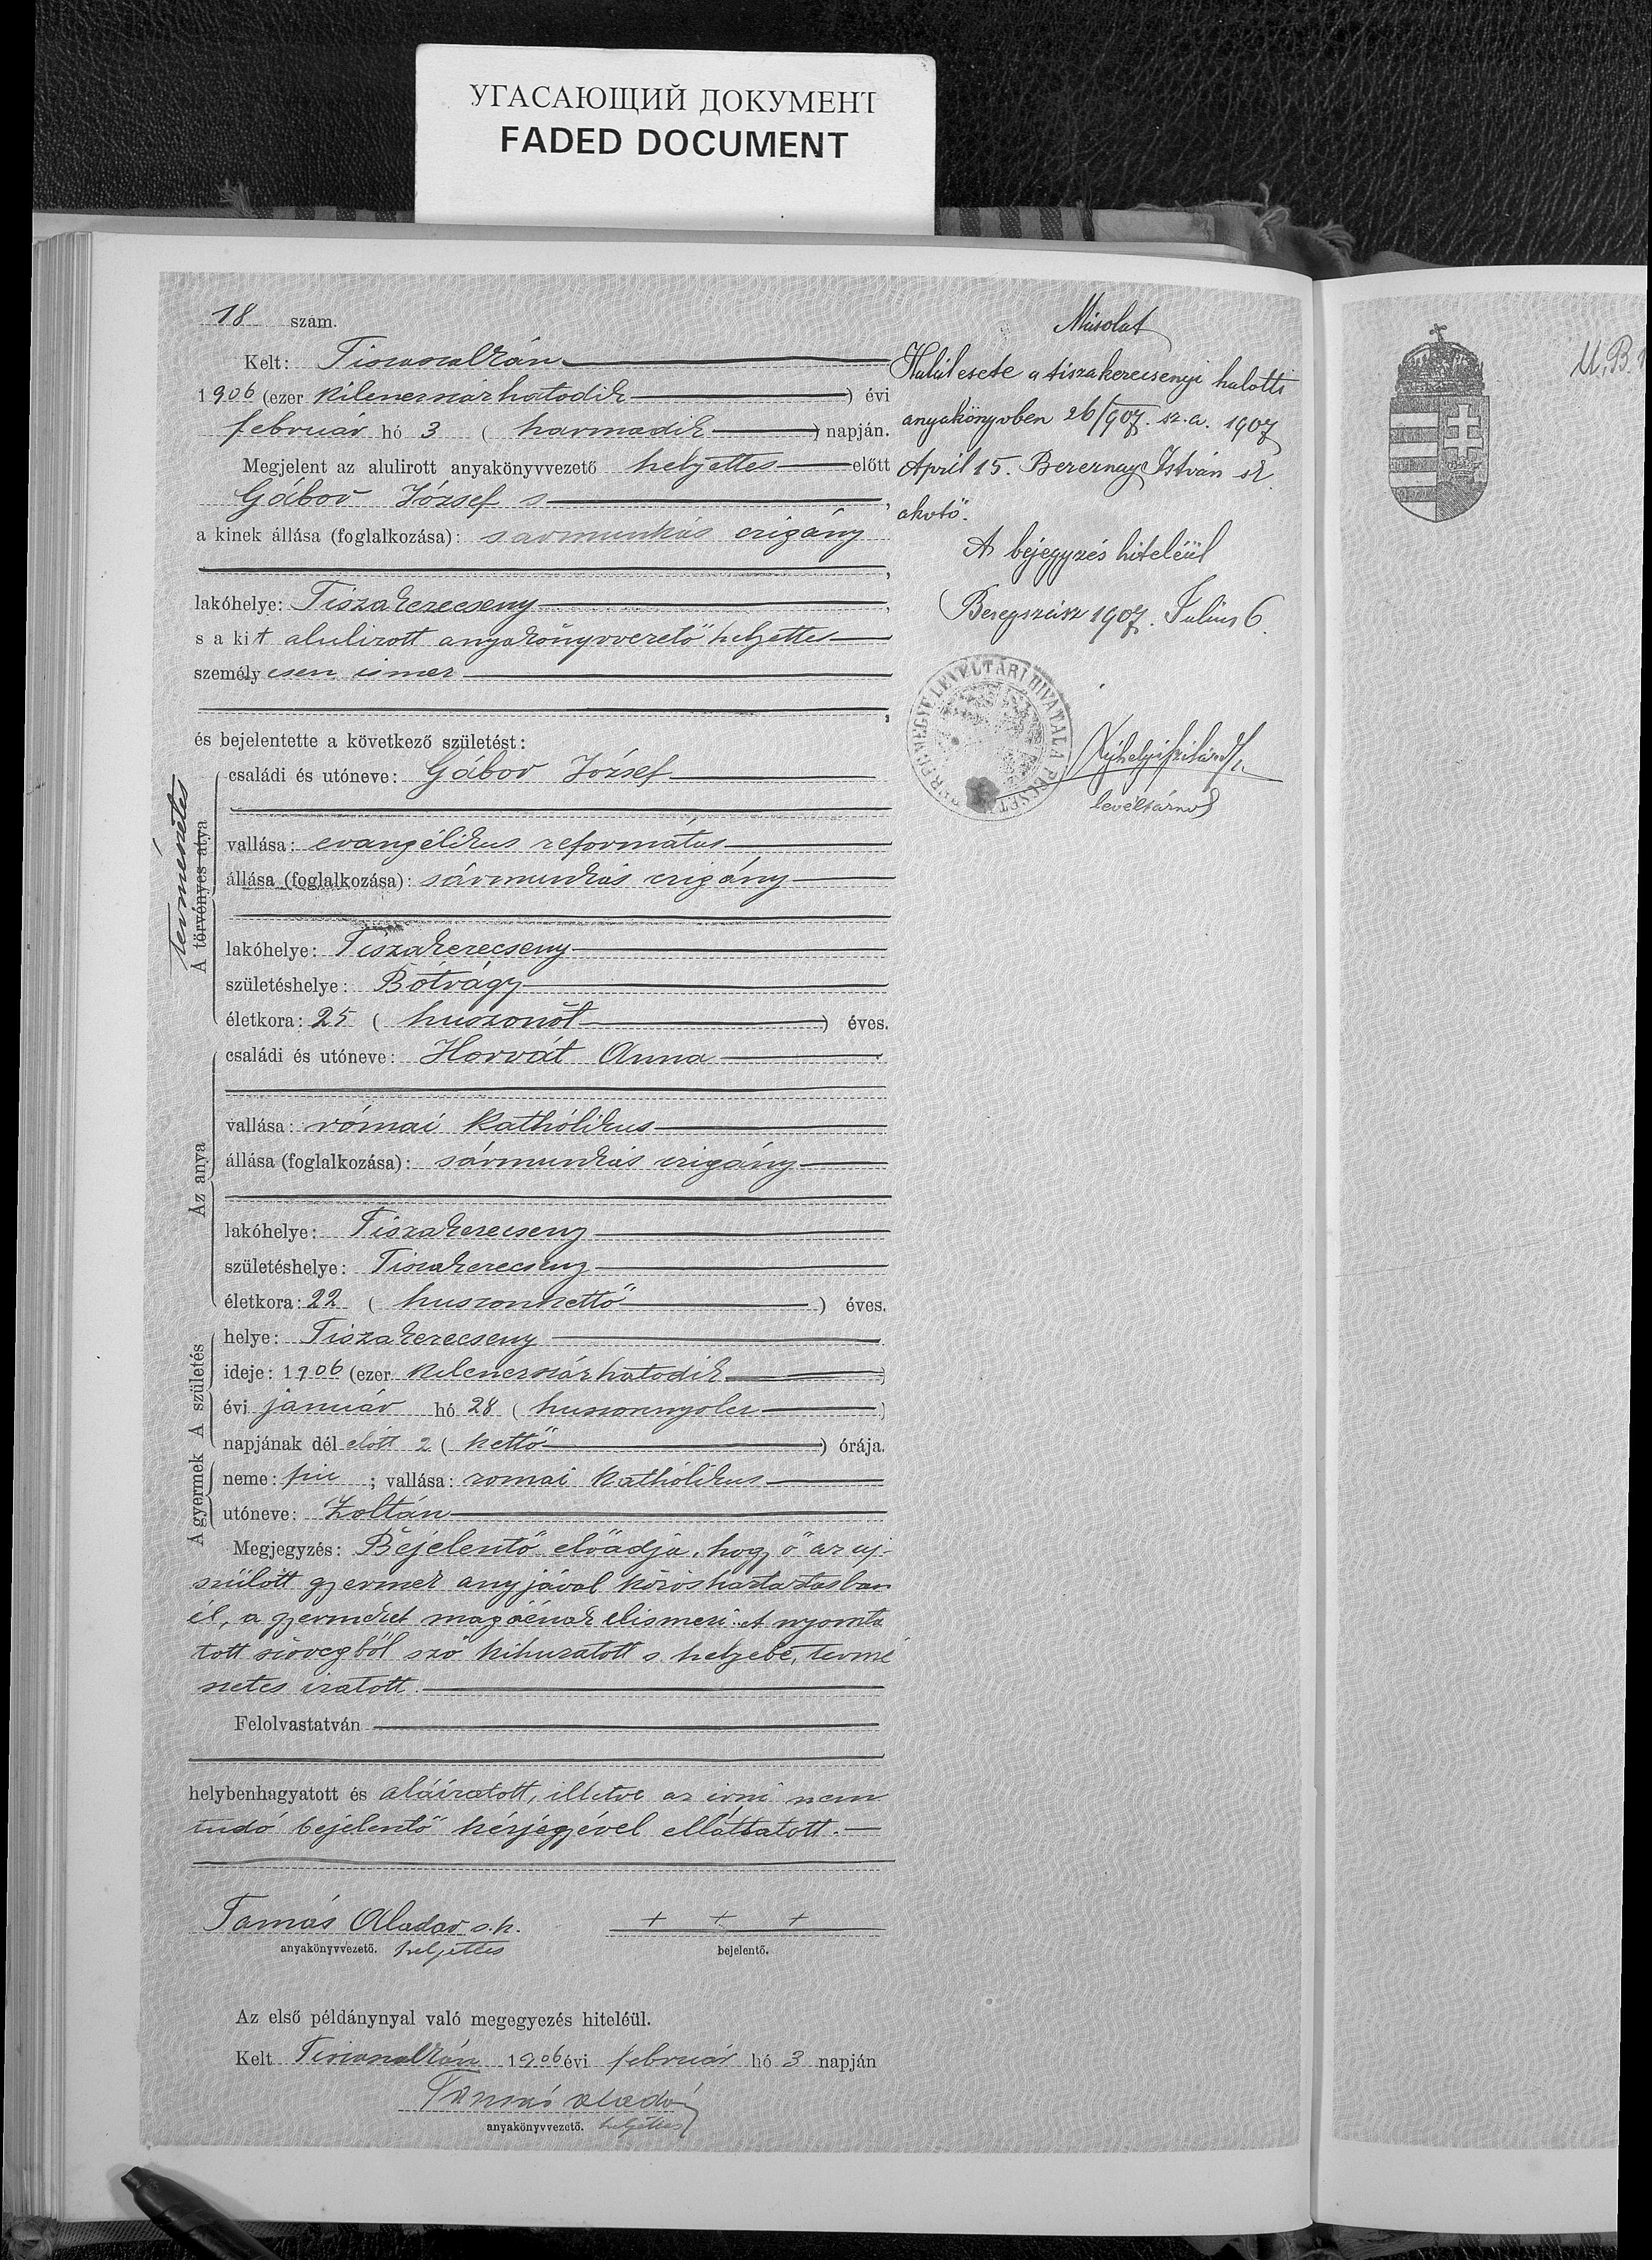 УГАСАЮЩИЙ ДОКУМЕНТ
FADED DOCUMENT
18 szám.
Kelt: Tiszaszalkán
1906 (ezer kilencszázhatodik) évi
február hó 3 (harmadik) napján.
Megjelent az alulirott anyakönyvvezető helyettes előtt
Gábor József s
a kinek állása (foglalkozása): sármunkás czigány
lakóhelye: Tiszakerecseny
s a kit alulirott anyakönyvvezető helyettes
személyesen ismer
és bejelentette a következő születést:
természetes
A törvényes atya
családi és utóneve: Gábor József
vallása: evangélikus református
állása (foglalkozása): sármunkás czigány
lakóhelye: Tiszakerecseny
születéshelye: Bótrágy
életkora: 25 (huszonöt) éves.
Az anya
családi és utóneve: Horvát Anna
vallása: római kathólikus
állása (foglalkozása): sármunkás czigány
lakóhelye: Tiszakerecseny
születéshelye: Tiszakerecseny
életkora: 22 (huszonkettő) éves.
A születés
helye: Tiszakerecseny
ideje: 1906 (ezer kilencszázhatodik)
évi január hó 28 (huszonnyolcz)
napjának dél előtt 2 (kettő) órája.
A gyermek
neme: fiu; vallása: romai kathólikus
utóneve: Zoltán
Megjegyzés: Bejelentő előadja, hogy ő az uj-
szülött gyermek anyjával közösháztartásban
él, a gyermeket magáénak elismeri. A nyomta
tott szövegből szó kihuzatott s helyébe, termé
szetes iratott.
Felolvastatván
helybenhagyatott és aláiratott, illetve az irni nem
tudó bejelentő kézjegyével elláttatott.
Tamás Aladar s.k.
+ + +
anyakönyvvezető. helyettes
bejelentő.
Az első példánynyal való megegyezés hiteléül.
Kelt Tiszaszalkán 1906 évi február hó 3 napján
Tamás Aladár
anyakönyvvezető. helyettes
Másolat
Halálesete a tiszakerecsenyi halotti
anyakönyvben 26/907. sz. a. 1907
April 15. István sk.
A bejegyzés hiteléül
Beregszász 1907. Julius 6.
BEREGMEGYE LEVÉLTÁRI HIVATALA PECSÉT
levéltárnok
U.B.